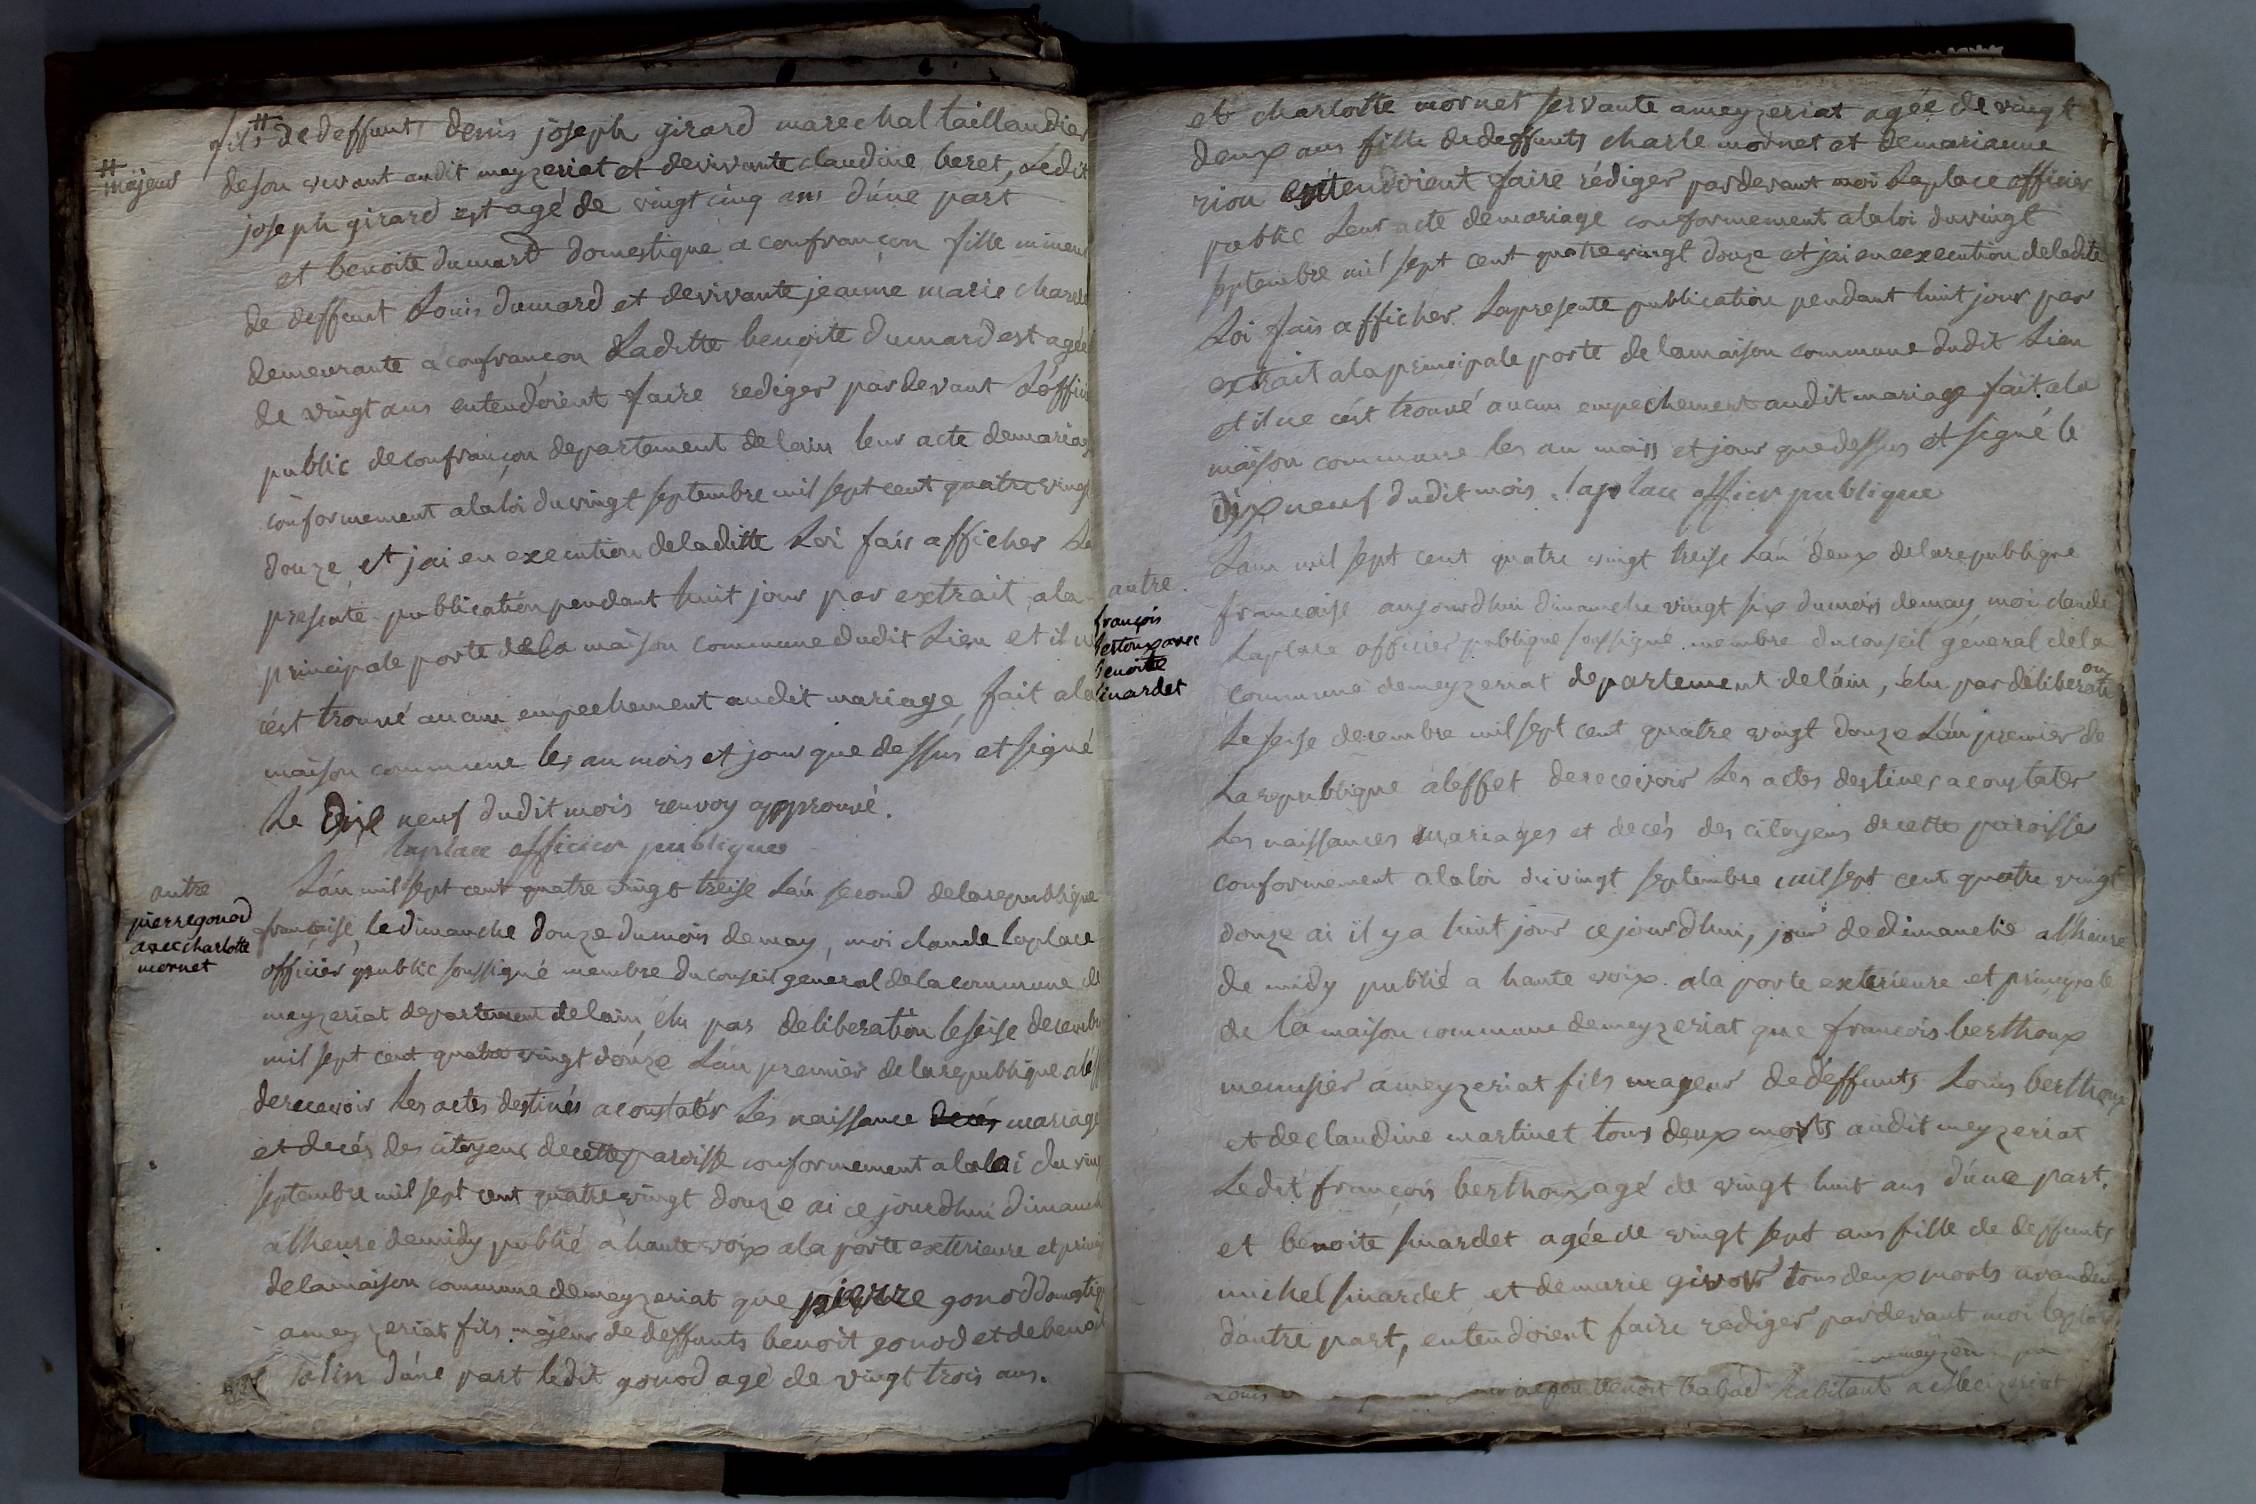 fils # de deffunts denis joseph girard marechal taillandier
# majeur
de son vivant audit meyzeriat et de vivante claudine beret, Ledit
joseph girard est agé de vingt cinq ans d'une part
et benoite dumard domestique a confrançon fille mineu
de deffunt Louis dumard et de vivante jeanne marie
demeurante a confrançon Laditte benoite dumard est agée
de vingt ans entendoient faire rediger pardevant L'offici
public de confrançon departement de lain leur acte de mariag
conformement a la loi du vingt septembre mil sept cent quatre vingt
douze, et jai en execution de laditte Loi fais afficher La
presente publication pendant huit jour par extrait a la
principale porte de la maison commune dudit Lieu et il n
cést trouvé aucun empechement audit mariage, fait a la
maison commune les an mois et jour que dessus et signé
Le Dix neuf dudit mois renvoy approuvé.
laplace officier publique
autre
pierre gonod
avec charlotte
mornet
L'an mil sept cent quatre vingt treise L'an second de la republique
francaise, le dimanche douze du mois de may, moi claude laplace
officier public soussigné membre du conseil géneral de la commune de
meyzeriat departement de lain, élu par deliberation le seise decembr
mil sept cent quatre vingt douze L'an premier de la republique a léff
de recevoir Les actes destinés a constatér Les naissance decés mariage
et decés des citoyens de cette paroisse conformement a la loi du ving
septembre mil sept cent quatre vingt douze ai ce jourdhui dimanch
a lheure de midy publié a haute voix a la porte exterieure et princi
de la maison commune de meyzeriat que pierre gonod domestiq
a meyzeriat fils majeur de deffunts benoit gonod et de benoi
d'une part ledit gonod agé de vingt trois ans.
et charlotte mornet servante a meyzeriat agée de vingt
deux ans fille de deffunts charle mornet et de marianne
rion entendoient faire rédiger pardevant moi Laplace officier
public Leur acte de mariage conformement a la loi du vingt
septembre mil sept cent quatre vingt douze et jai en execution de ladite
Loi fais afficher La presente publication pendant huit jour par
extrait a la principale porte de la maison commune dudit Lieu
et il ne cést trouvé aucun empechement audit mariage fait a la
maison commune les an mois et jour que dessus et signé le
Dix neuf dudit mois. laplace officier publique
autre.
françois
bertoux avec
benoitte
sinardet
L'an mil sept cent quatre vingt treise L'an deux de la republique
francaise aujourdhui dimanche vingt six du mois de may, moi claude
Laplace officier publique soussigné membre du conseil general de la
commune de meyzeriat departement de láin, élu par deliberation
Le seise decembre mil sept cent quatre vingt douze L'an premier de
La republique a leffet de recevoir Les actes destines a constater
Les naissances mariages et decés des citoyens de cette paroisse
conformement a la loi du vingt septembre mil sept cent quatre vingt
douze ai il y a huit jour ce jourdhui, jour de dimanche a lheure
de midy publié a haute voix a la porte exterieure et principale
de la maison commune de meyzeriat que francois berthoux
menusier a meyzeriat fils mageur de deffunts Louis berthoux
et de claudine martinet tous deux morts audit meyzeriat
Ledit françois berthoux agé de vingt huit ans d'une part.
et benoite sinardet agée de vingt sept ans fille de deffunts
michel sinardet et de marie tous deux morts a
d'autre part, entendoient faire rediger pardevant moi laplac
habitant a